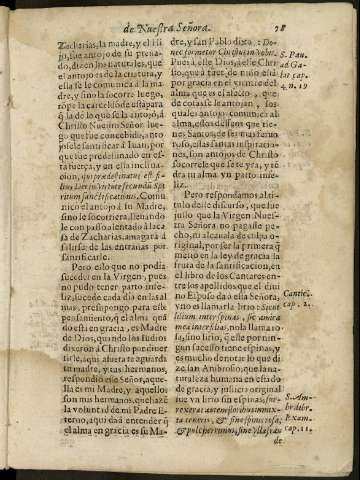 de Nuestra Señora.
78
Zacharias, la madre, y el hi
jo, fue antojo de su preña-
do, dizen los naturales, que
el antojo es de la criatura, y
ella se le comunica a la ma
dre, y sino la socorre luego,
rõpe la carcel dõde està para
q̃ la dè lo que se la antojò, à
Christo Nuestro Señor luego
que fue concebido, se le anto
jole santificar à Iuan, por
que fue predestinado en es-
ta fuerça, y en esta inclina
cion, qui prædestinatus est fi-
lius Dei in virtute secundũ Spi
ritum sanctificationis, Comu
nicò el antojo à su Madre,
sino le socorriera, lleuando
le con passo alentado à la ca
sa de Zacharias, amagarà a
salirse de las entrañas por
santificarle.
Pero esto que no podia
suceder en la Virgen, pues
no pudo tener parto infe-
liz, sucede cada dia en las al
mas, presupongo para este
pensamiento, q̃ el alma quã
do està en gracia, es Madre
de Dios, quando los Iudios
dixeron à Christo pon diuer
tirle, aqui afuera te aguarda
tu madre, y tus hermanos,
respondiò esse Señor, aque-
lla es mi Madre, y aquellos
son mis hermanos, que hazẽ
la voluntad de mi Padre E-
terno, aqui dà à entender q̃
el alma en gracia es su Ma-
dre, y san Pablo dixo: Do-
nec formetur Christus in vobis.
Pues à esse Dios, à esse Chri
sto, que à fuer de niño està
por gracia en el vientre del
alma que es el afecto, que
de cosas se le antojan, los
quales antojos comunica al
alma, estos desseos que tienes
Santos, de ser mas famo
roso, essas santas inspiracio-
nes, son antojos de Christo
socorrele que se te yra, y tẽ
drà tu alma vn parto infe-
liz.
Pero respondamos al vl-
timo discurso, que fue
justo que la Virgen Nues-
tra Señora no pagasse pe-
cho, ni alcauala de culpa o-
riginal, por ser la primera q̃
metiò en la ley de gracia la
fruta de la santificacion, en
el libro de los Cantares en-
tre los apellidos que el diui
no Esposo da à essa Señora,
vno es llamarla lirio: Sicut
lilium inter spinas, sic amica
mea inter filias, no la llama ro
sa, sino lirio, q̃ esse por nin-
gun sucesso tiene espinas, y
es mucho de notar lo que di
ze, san Ambrosio, que la na-
turaleza humana en estado
de gracia, y justicia original
fue vn lirio sin espinas, sur-
rexerat ante floribus immix-
ta terrenis, & sine spinis rosa,
& pulcherrimus, sine vlla fran
de
S. Pau.
ad Ga-
lat. cap.
4. n. 19
Cantic.
cap. 2.
S. Am-
bros. lib.
Exam.
cap. 11.